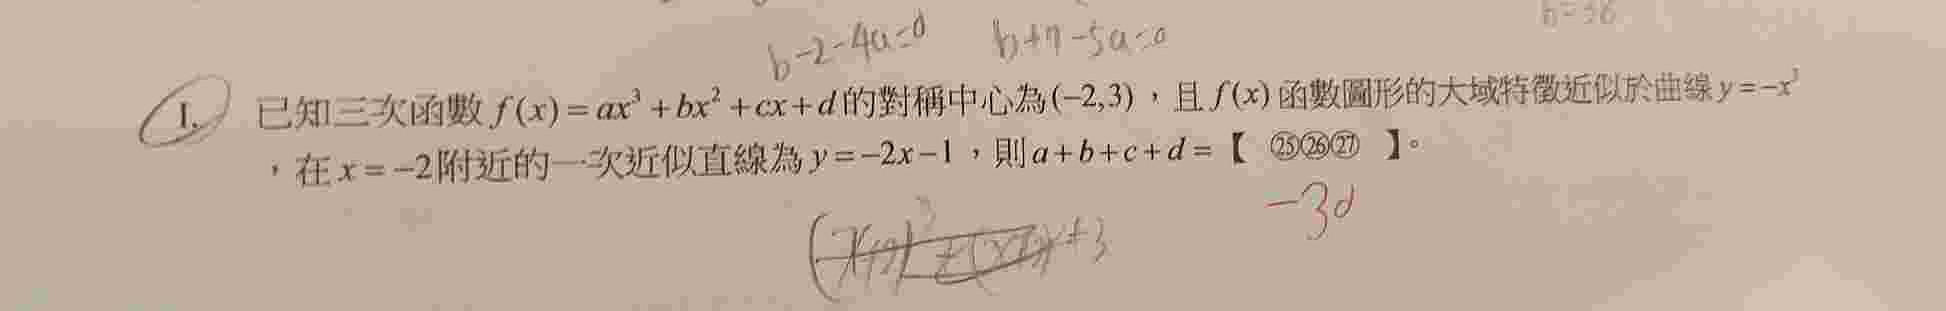 b-2-4a=0 b+7-5a=0
1. 已知三次函數 f(x)=ax³+bx²+cx+d 的對稱中心為(-2,3),且 f(x) 函數圖形的大域特徵近似於曲線 y=-x³
,在 x=-2 附近的一次近似直線為 y=-2x-1,則 a+b+c+d=【 ㉕㉖㉗ 】。
-30
+3